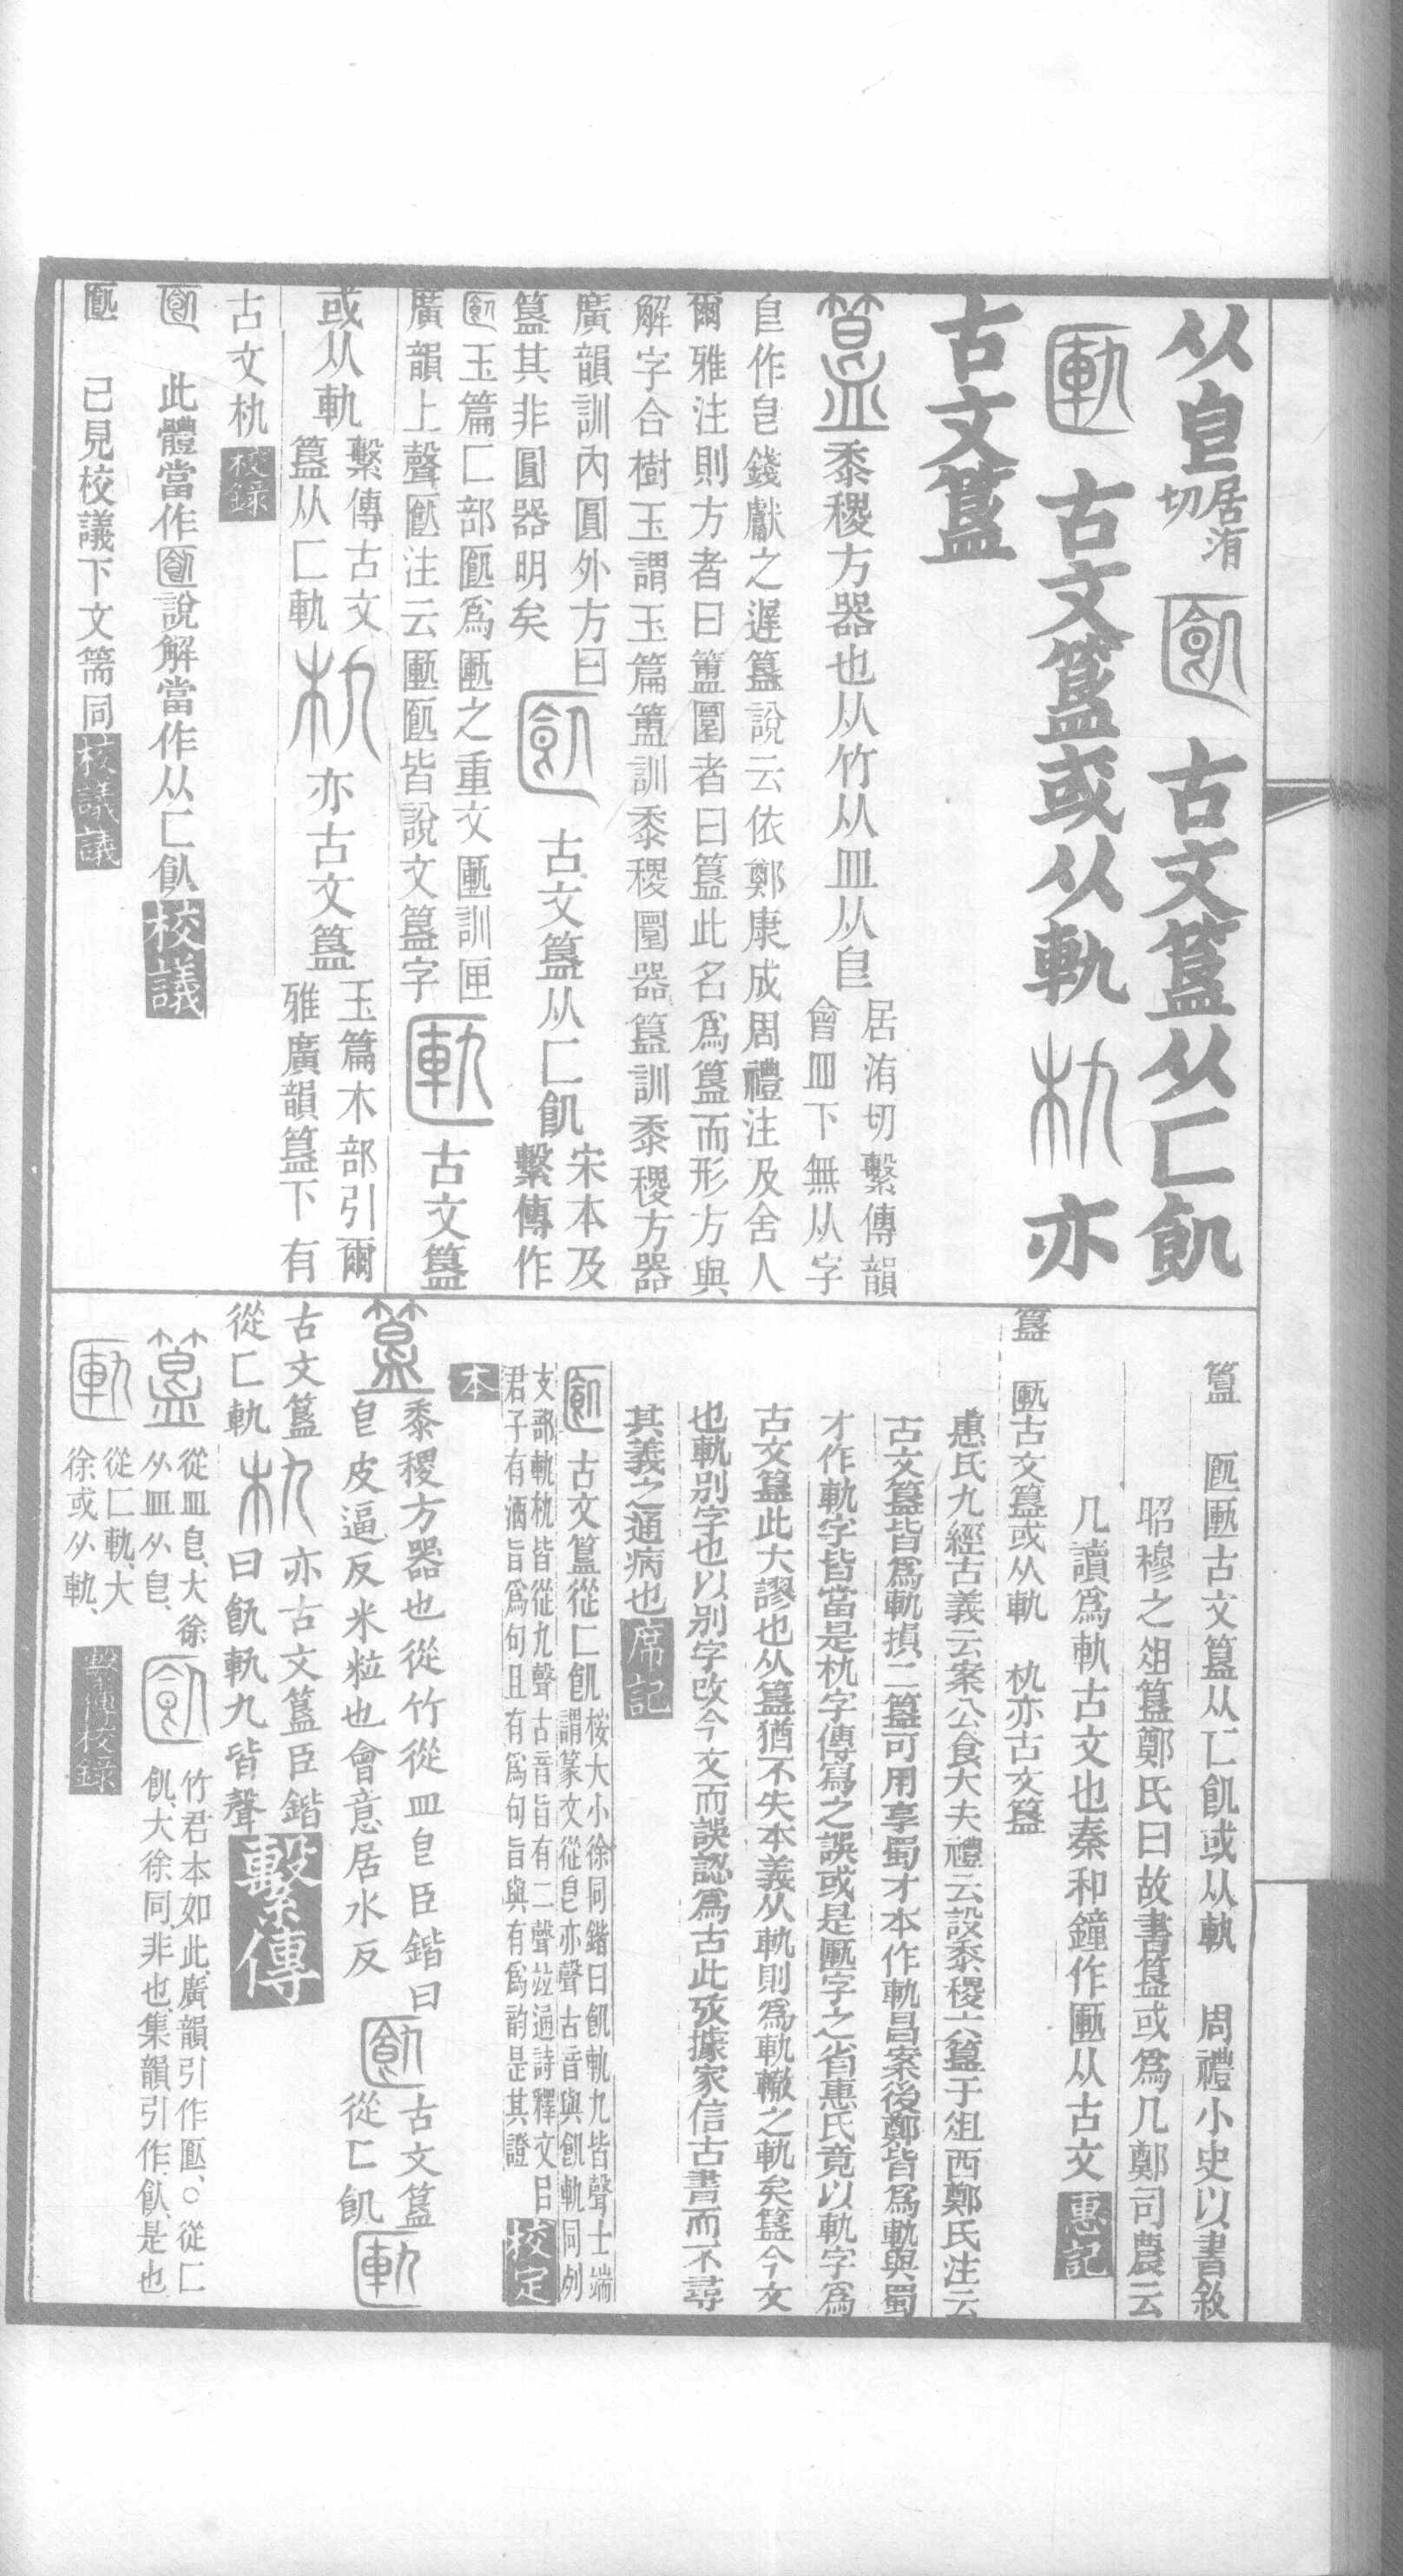 从皀居洧切 𠥗 古文簋从匚飢
匭 古文簋或从軌 朹 亦
古文簋
簋黍稷方器也从竹从皿从皀居洧切繫傳韻會皿下無从字
皀作皂錢獻之遲簋說云依鄭康成周禮注及舍人
爾雅注則方者曰簠圜者曰簋此名爲簋而形方與
解字合樹玉謂玉篇簠訓黍稷圜器簋訓黍稷方器
廣韻訓內圓外方曰
簋其非圓器明矣
𠥗 古文簋从匚飢宋本及繫傳作
𠥗玉篇匚部匭爲匭之重文匭訓匣
廣韻上聲匭注云匭𠥗皆說文簋字
匭 古文簋
或从軌繫傳古文簋从匚軌 朹 亦古文簋玉篇木部引爾雅廣韻簋下有
古文朹校録
𠥗 此體當作𠥗說解當作从匚飤校議
𠥗 已見校議下文箵同校議議
簋 𠥗匭古文簋从匚飢或从軌 周禮小史以書敘
昭穆之俎簋鄭氏曰故書簋或爲几鄭司農云
几讀爲軌古文也秦和鐘作匭从古文惠記
簋 匭古文簋或从軌 朹亦古文簋
惠氏九經古義云案公食大夫禮云設黍稷六簋于俎西鄭氏注云
古文簋皆爲軌損二簋可用享蜀才本作軌昌案後鄭皆爲軌與蜀
才作軌字皆當是朹字傳寫之誤或是匭字之省惠氏竟以軌字爲
古文簋此大謬也从簋猶不失本義从軌則爲軌轍之軌矣簋今文
也軌别字也以别字改今文而誤認爲古此攷據家信古書而不尋
其義之通病也席記
𠥗 古文簋從匚飢桉大小徐同鍇曰飢軌九皆聲士端謂篆文從皀亦聲古音與飢軌同列
支部軌朹皆從九聲古音旨有二聲竝通詩釋文曰君子有酒旨爲句且有爲句旨與有爲韵是其證校定
本
簋黍稷方器也從竹從皿皀臣鍇曰
皀皮逼反米粒也會意居水反 𠥗古文簋從匚飢 匭
古文簋從匚軌 朹亦古文簋臣鍇曰飢軌九皆聲繫傳
簋從皿皀、大徐从皿从皀、 𠥗竹君本如此、廣韻引作匭、○從匚飢、大徐同、非也、集韻引作飤、是也
匭從匚軌、大徐或从軌、繫傳校録